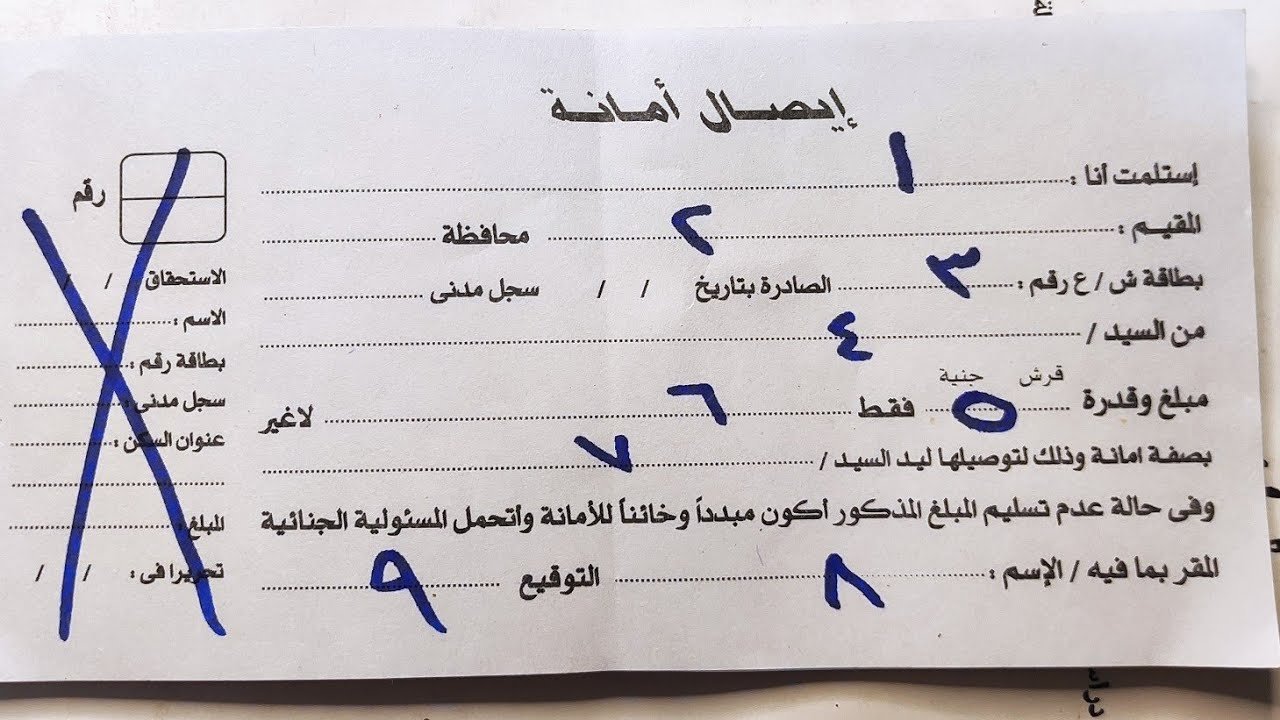 إيصال أمانة
إستلمت أنا : ١
المقيم : ٢ محافظة
بطاقة ش / ع رقم : ٣ الصادرة بتاريخ / / سجل مدنى
من السيد / ٤
قرش جنية
مبلغ وقدرة ٥ فقط ٦ لاغير
بصفة امانة وذلك لتوصيلها ليد السيد / ٧
وفى حالة عدم تسليم المبلغ المذكور أكون مبدداً وخائناً للأمانة وأتحمل المسئولية الجنائية
المقر بما فيه / الإسم : ٨ التوقيع ٩
رقم
الاستحقاق / /
الاسم :
بطاقة رقم :
سجل مدنى :
عنوان السكن :
المبلغ :
تحريرا فى : / /